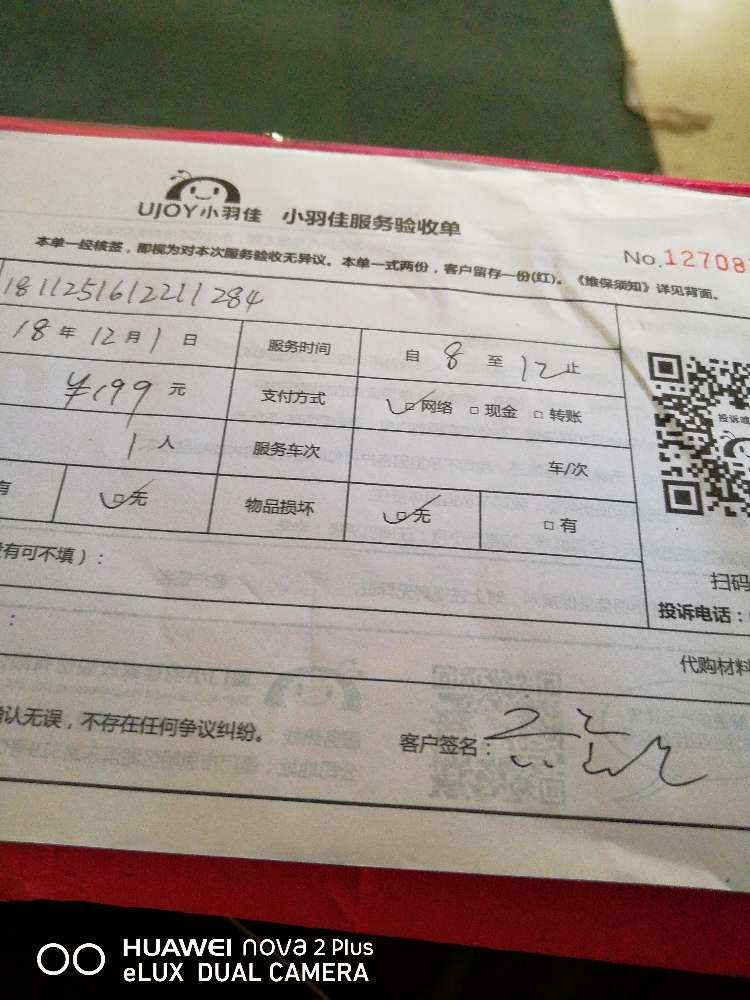 UJOY小羽佳 小羽佳服务验收单
No.12708
本单一经核签，即视为对本次服务验收无异议。本单一式两份，客户留存一份(红)。《维保须知》详见背面。
1811251612211284
18年12月1日 服务时间 自8至12止
¥199元 支付方式 网络 现金 转账
1人 服务车次 车/次
有 无 物品损坏 无 有
有可不填）：
投诉
扫码
投诉电话：
：
代购材料
认无误，不存在任何争议纠纷。
客户签名：
HUAWEI nova 2 Plus
eLUX DUAL CAMERA